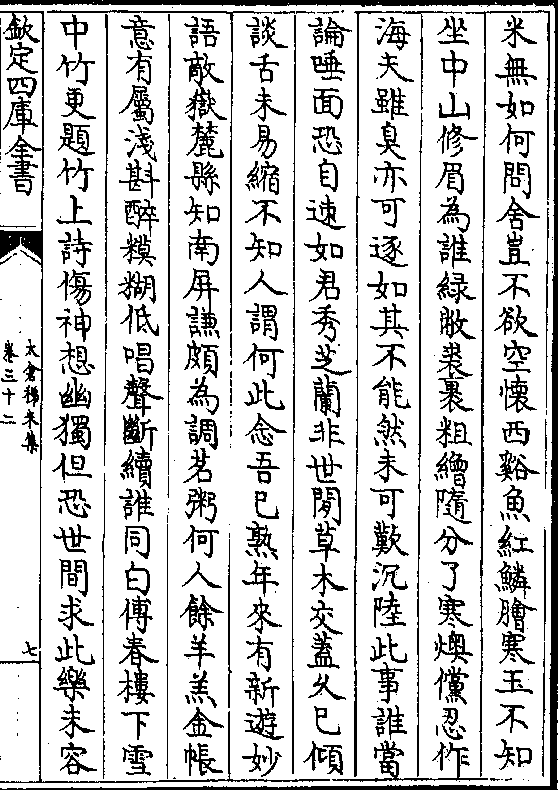 米無如何問舍豈不欲空懷西谿魚紅鱗膾寒玉不知
坐中山修眉為誰緑敝裘裹粗繒隨分了寒燠儻忍作
海夫雖臭亦可逐如其不能然未可歎沉陸此事誰當
論唾面恐自速如君秀芝蘭非世閒草木交蓋久已傾
談舌未易縮不知人謂何此念吾已熟年來有新遊妙
語敵嶽麓縣知南屏謙頗為調茗粥何人餘羊羔金帳
意有屬淺斟醉糢糊低唱聲斷續誰同白傅春樓下雪
中竹更題竹上詩傷神想幽獨但恐世間求此樂未容
欽定四庫全書
太倉稊米集
卷三十二
七